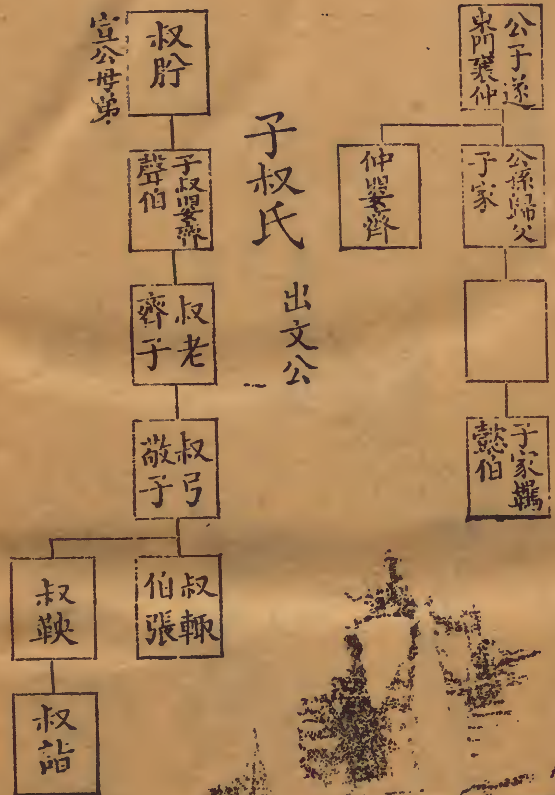 公子遂
東門襄仲
公孫歸父
子家
仲嬰齊
子家羈
懿伯
子叔氏
出文公
叔肸
宣公母弟
子叔嬰齊
聲伯
叔老
齊子
叔弓
敬子
叔輒
伯張
叔鞅
叔詣